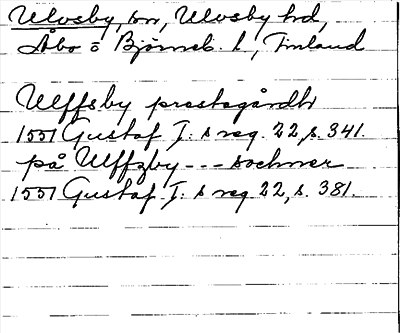 Ulvsby, sn, Ulvsby hd,
Åbo o Björneb. l., Finland
Ulffsby prestegårdh
1551 Gustaf I: s reg. 22, s. 341.
på Ulffzby --- sochner
1551 Gustaf I: s reg. 22, s. 381.